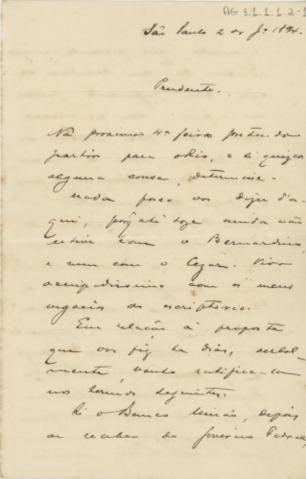 AG 3.1.1.2-1
São Paulo 2 de J.º 1894.
Prudente.
Na proxima 4ª feira pretendo
partir para o Rio, e si quizer
alguma cousa, determine.
Nada posso vos dizer d'a-
qui, pois até hoje ainda não
estive com o Bernardino
e nem com o Cezar. Vivo
occupadissimo com os meus
negocios do escriptorio.
Em relação á proposta
que vos fiz ha dias, verbal-
mente, venho ratifical-a
nos termos seguintes.
Si o Banco União, depois
de receber do Governo Federal,